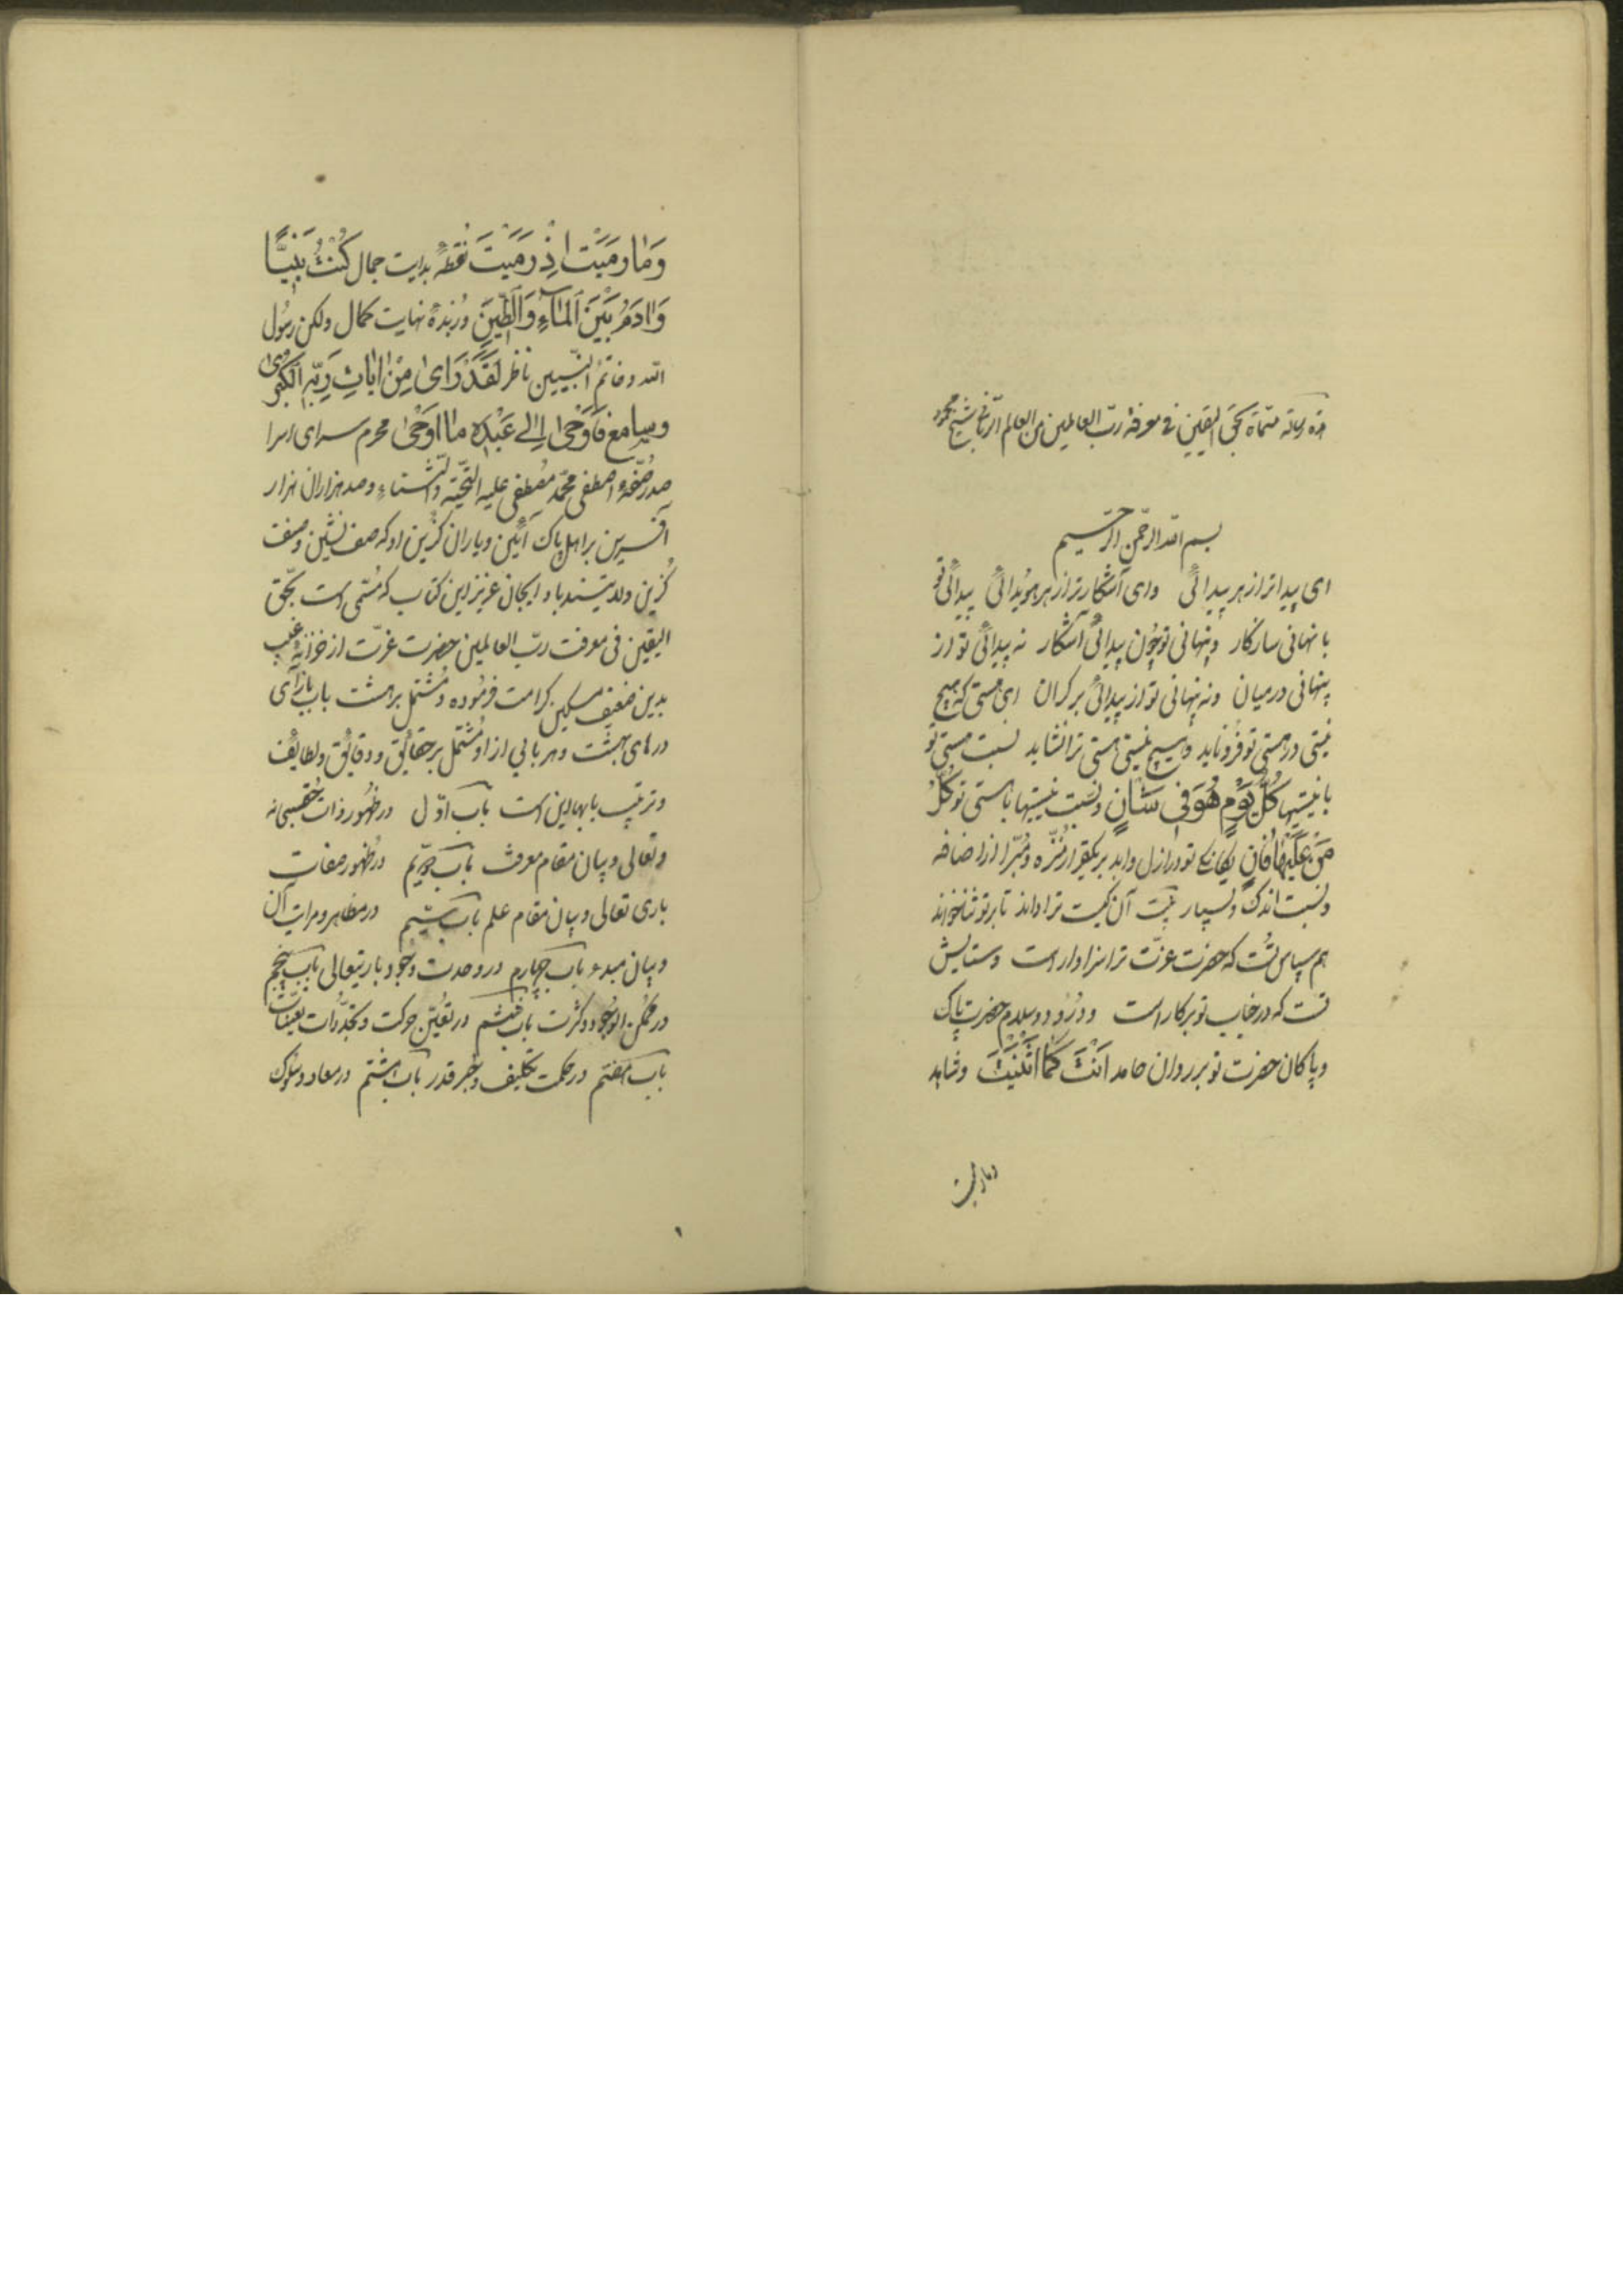 هذه رسالة مسماة بحق اليقين في معرفة رب العالمين من العالم الرباني شيخ محمود
بسم الله الرحمن الرحيم
ای پیداتر از هر پیدائی وای آشکارتر از هر هویدائی پیدائی تو
با نهانی سازکار و پنهانی تو چون پیدائی آشکار نه پیدائی تو از
پنهانی در میان ونه پنهانی تو از پیدائی بر کران ای هستی که هیچ
نیستی در هستی تو فرو ناید و هیچ نیستی هستی ترا نشاید نسبت هستی تو
با نیستیها كُلَّ يَوْمٍ هُوَ فِي شَأْنٍ ونسبت نیستیها با هستی تو كُلُّ
مَنْ عَلَيْهَا فَانٍ یکانکی تو در ازل وابد بر یکقرار منزّه ومبرّا از اضافه
ونسبت اندک وبسیار نیست آن کیست ترا داند تا بر تو ثنا خواند
هم سپاس تست که حضرت عزت ترا سزاوار است وستایش
تست که در جناب تو بر کار است ودرود وسلام حضرت پاک
وپاکان حضرت تو بر روان حامد اَنْتَ كَمَا اَثْنَيْتَ وشاهد
وما رمیت
وَمَا رَمَيْتَ اِذْ رَمَيْتَ نقطهٔ بدایت جمال كُنْتُ نَبِيًّا
وَادَمُ بَيْنَ الْمَاءِ وَالطِّينِ وزبدهٔ نهایت کمال ولکن رسول
الله وخاتم النبیین ناظر لَقَدْ رَاىٰ مِنْ اٰيَاتِ رَبِّهِ الْكُبْرىٰ
وسامع فَاَوْحىٰ اِلىٰ عَبْدِهِ مَا اَوْحىٰ محرم سرای اسرا
صدر صفهٔ اصطفی محمد مصطفی علیه التحیّة والثناء وصد هزاران هزار
آفرین بر اهل پاک آئین ویاران گزین او که صف نشین وصف
گزین ولدیتند باد ایجان عزیز این کتاب که مسمّی است بحق
الیقین فی معرفت ربّ العالمین حضرت عزّت از خزانهٔ غیب
بدین ضعیف مسکین کرامت فرموده ومشتمل بر هشت باب بازآی
درهای بهشت وهر بابی از او مشتمل بر حقائق ودقائق ولطائف
وترتیب بابها این است باب اوّل در ظهور ذات حق سبحانه
وتعالی وبیان مقام معرفت باب دویّم در ظهور صفات
باری تعالی وبیان مقام علم باب سیّم در مظاهر ومراتب آن
وبیان مبدء باب چهارم در وحدت وجود باریتعالی باب پنجم
در ممکن الوجود وکثرت باب ششم در تعیّن حرکت وتجدّدات تعیّنات
باب هفتم در حکمت تکلیف وجبر وقدر باب هشتم در معاد وسلوک
۱